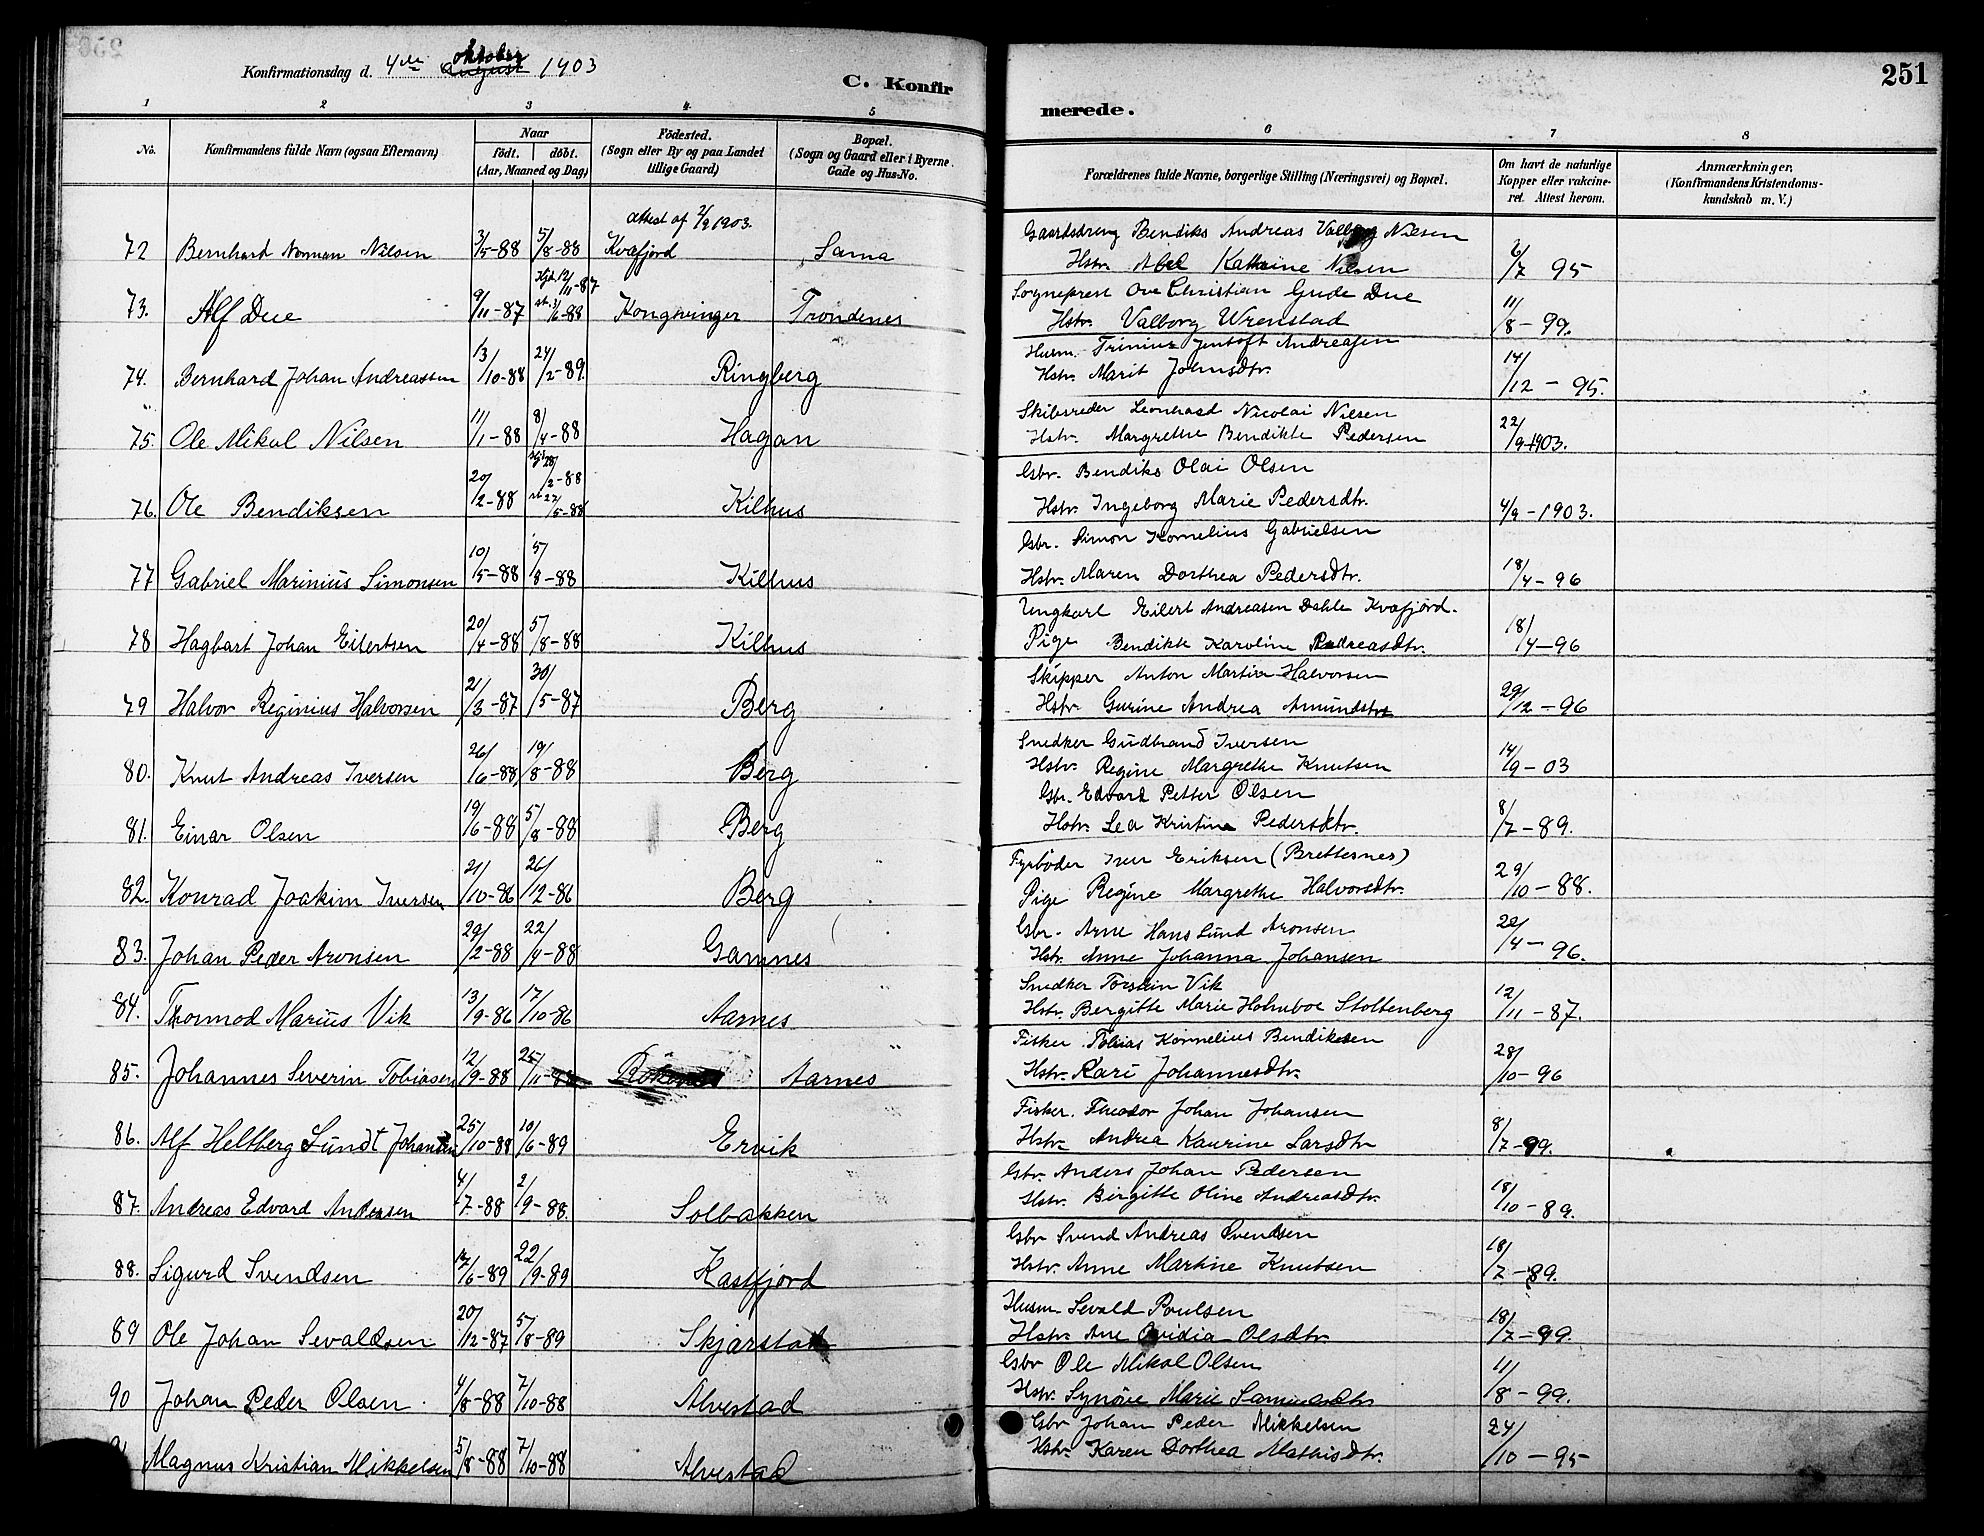 250
Konfirmationsdag d. 4de oktober august 1903
C. Konfir
1 2 3 4 5
No. Konfirmandens fulde Navn (ogsaa Efternavn) Naar Födested. Bopæl.
födt. döbt. (Sogn eller By og paa Landet (Sogn og Gaard eller i Byerne
(Aar, Maaned og Dag) tillige Gaard) Gade og Hus-No.
attest af 2/9 1903.
72 Bernhard Norman Nilsen 3/5-88 5/8-88 Kvæfjord Sama
73. Alf Due 9/11-87 Hjd. 12/11-87 st. 3/6-88 Kongsvinger Trondenes
74. Bernhard Johan Andreassen 13/10-88 24/2-89. Ringberg
75. Ole Mikal Nilsen 11/1-88 8/4-88 Hagan
76. Ole Bendiksen 20/2-88 28/2-88 22/5-88 Kilhus
77 Gabriel Marinius Simonsen 10/5-88 5/8-88 Kilhus
78 Hagbart Johan Eilertsen 20/4-88 5/8-88 Kilhus
79 Halvor Reginius Halvorsen 21/3-87 30/5-87 Berg
80. Knut Andreas Iversen 26/6-88 19/8-88 Berg
81. Einar Olsen 19/6-88 5/8-88 Berg
82. Konrad Joakim Iversen 21/10-86 26/12-86 Berg
83. Johan Peder Aronsen 29/2-88 22/4-88 Gamnes
84. Thormod Marius Vik 13/9-86 17/10-86 Aarnes
85. Johannes Severin Tobiasen 12/9-88 25/11-88 Aarnes
86. Alf Heltberg Lundt Johansen 25/10-88 10/6-89 Ervik
87. Andreas Edvard Andersen 4/7-88 2/9-88. Solbakken
88. Sigurd Svendsen 17/6-89 22/9-89 Kastfjord
89 Ole Johan Sevaldsen 20/12-87 5/8-89 Skjærstad
90 Johan Peder Olsen. 4/8-88 7/10-88 Alvestad
Magnus Kristian Mikkelsen 5/8-88 7/10-88 Alvestad
251
merede.
6 7 8
Forældrenes fulde Navne, borgerlige Stilling (Næringsvei) og Bopæl. Om havt de naturlige Anmærkninger,
Kopper eller vakcine- (Konfirmandens Kristendoms-
ret. Attest herom. kundskab m. V.)
Gaardsdreng Bendiks Andreas Valberg Nilsen
Hstr. Abel Katrine Nilsen 6/7 95
Sogneprest Ove Christian Gude Due
Hstr. Valborg Wrenstad 11/8-99.
Husm. Trinius Jentoft Andreasen
Hstr. Marit Johnsdtr. 14/12-95.
Skibsreder Leonhard Nicolai Nilsen
Hstr. Margrethe Bendikte Pedersen 22/9-1903.
Gbr. Bendiks Olai Olsen
Hstr. Ingeborg Marie Pedersdtr. 4/9-1903.
Gbr. Simon Kornelius Gabrielsen
Hstr. Maren Dorthea Pedersdtr. 18/4-96
Ungkarl Eilert Andreasen Dahle Kvæfjord.
Pige Bendikte Karoline Pedreasdtr. 18/4-96
Skipper Anton Martin Halvorsen
Hstr. Gurine Andrea Amundstr 29/12-96
Snedker Gudbrand Iversen
Hstr. Regine Margrethe Knutsen 14/9-03
Gbr. Edvard Petter Olsen
Hstr. Lea Kristine Pedersdtr. 8/7-89.
Fyrböder Iver Eriksen (Brettesnes)
Pige Regine Margrethe Halvorsdtr. 29/10-88.
Gbr. Arne Hans Lund Aronsen
Hstr. Anne Johanna Johansen 22/4-96.
Snedker Torstein Vik
Hstr. Bergitte Marie Holmboe Stoltenberg 12/11-87.
Fisker Tobias Kornelius Bendiksen
Hstr. Kari Johannesdtr. 28/10-96
Fisker. Theodor Johan Johansen
Hstr. Andrea Kaurine Larsdtr 8/7-99.
Gbr. Anders Johan Pedersen
Hstr. Birgitte Oline Andreasdtr. 18/10-89.
Gbr Svend Andreas Svendsen
Hstr. Anne Martine Knutsen 18/7-89.
Husm. Sevald Poulsen
Hstr. Ane Ovidia Olsdtr 18/7-99.
Gbr Ole Mikal Olsen
Hstr. Synöve Marie 11/8-99.
Gbr Johan Peder Mikkelsen
Hstr. Karen Dorthea Mathisdtr. 24/10-95